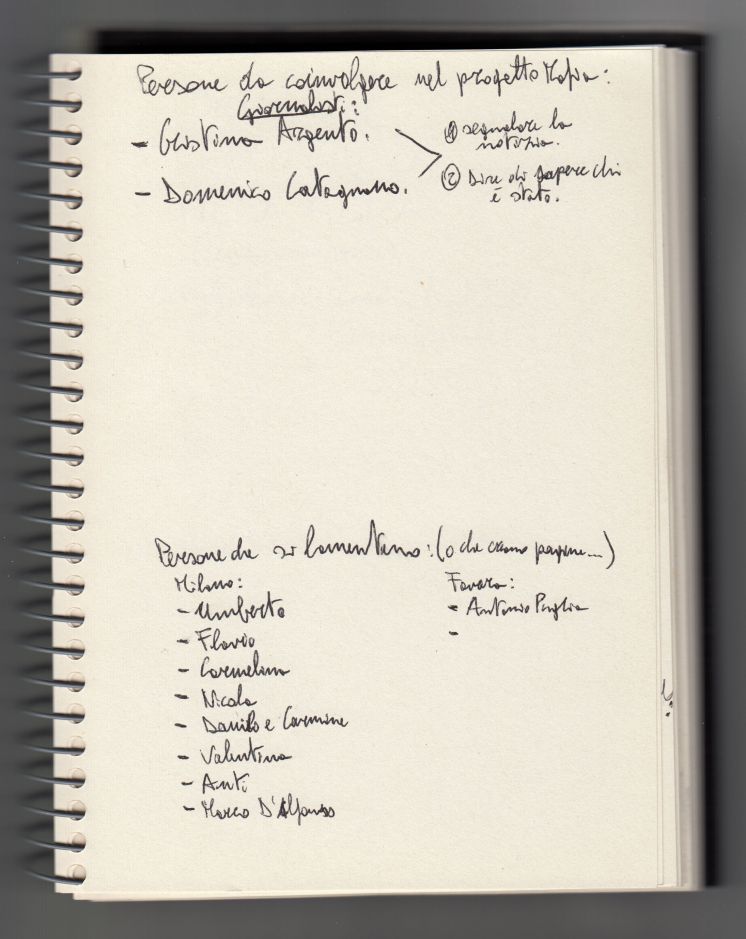 Persone da coinvolgere nel progetto Mafia:
Giornalisti:
- Cristina Argento.
- Domenico Catagnano.
① segnalare la
notizia.
② Dire di sapere chi
è stato.
Persone che si lamentano: (o che creano pagine...)
Milano:
- Umberto
- Flavio
- Carmelina
- Nicola
- Danilo e Carmine
- Valentina
- Anti
- Marco D'Alfonso
Favara:
- Antonio Puglia
-